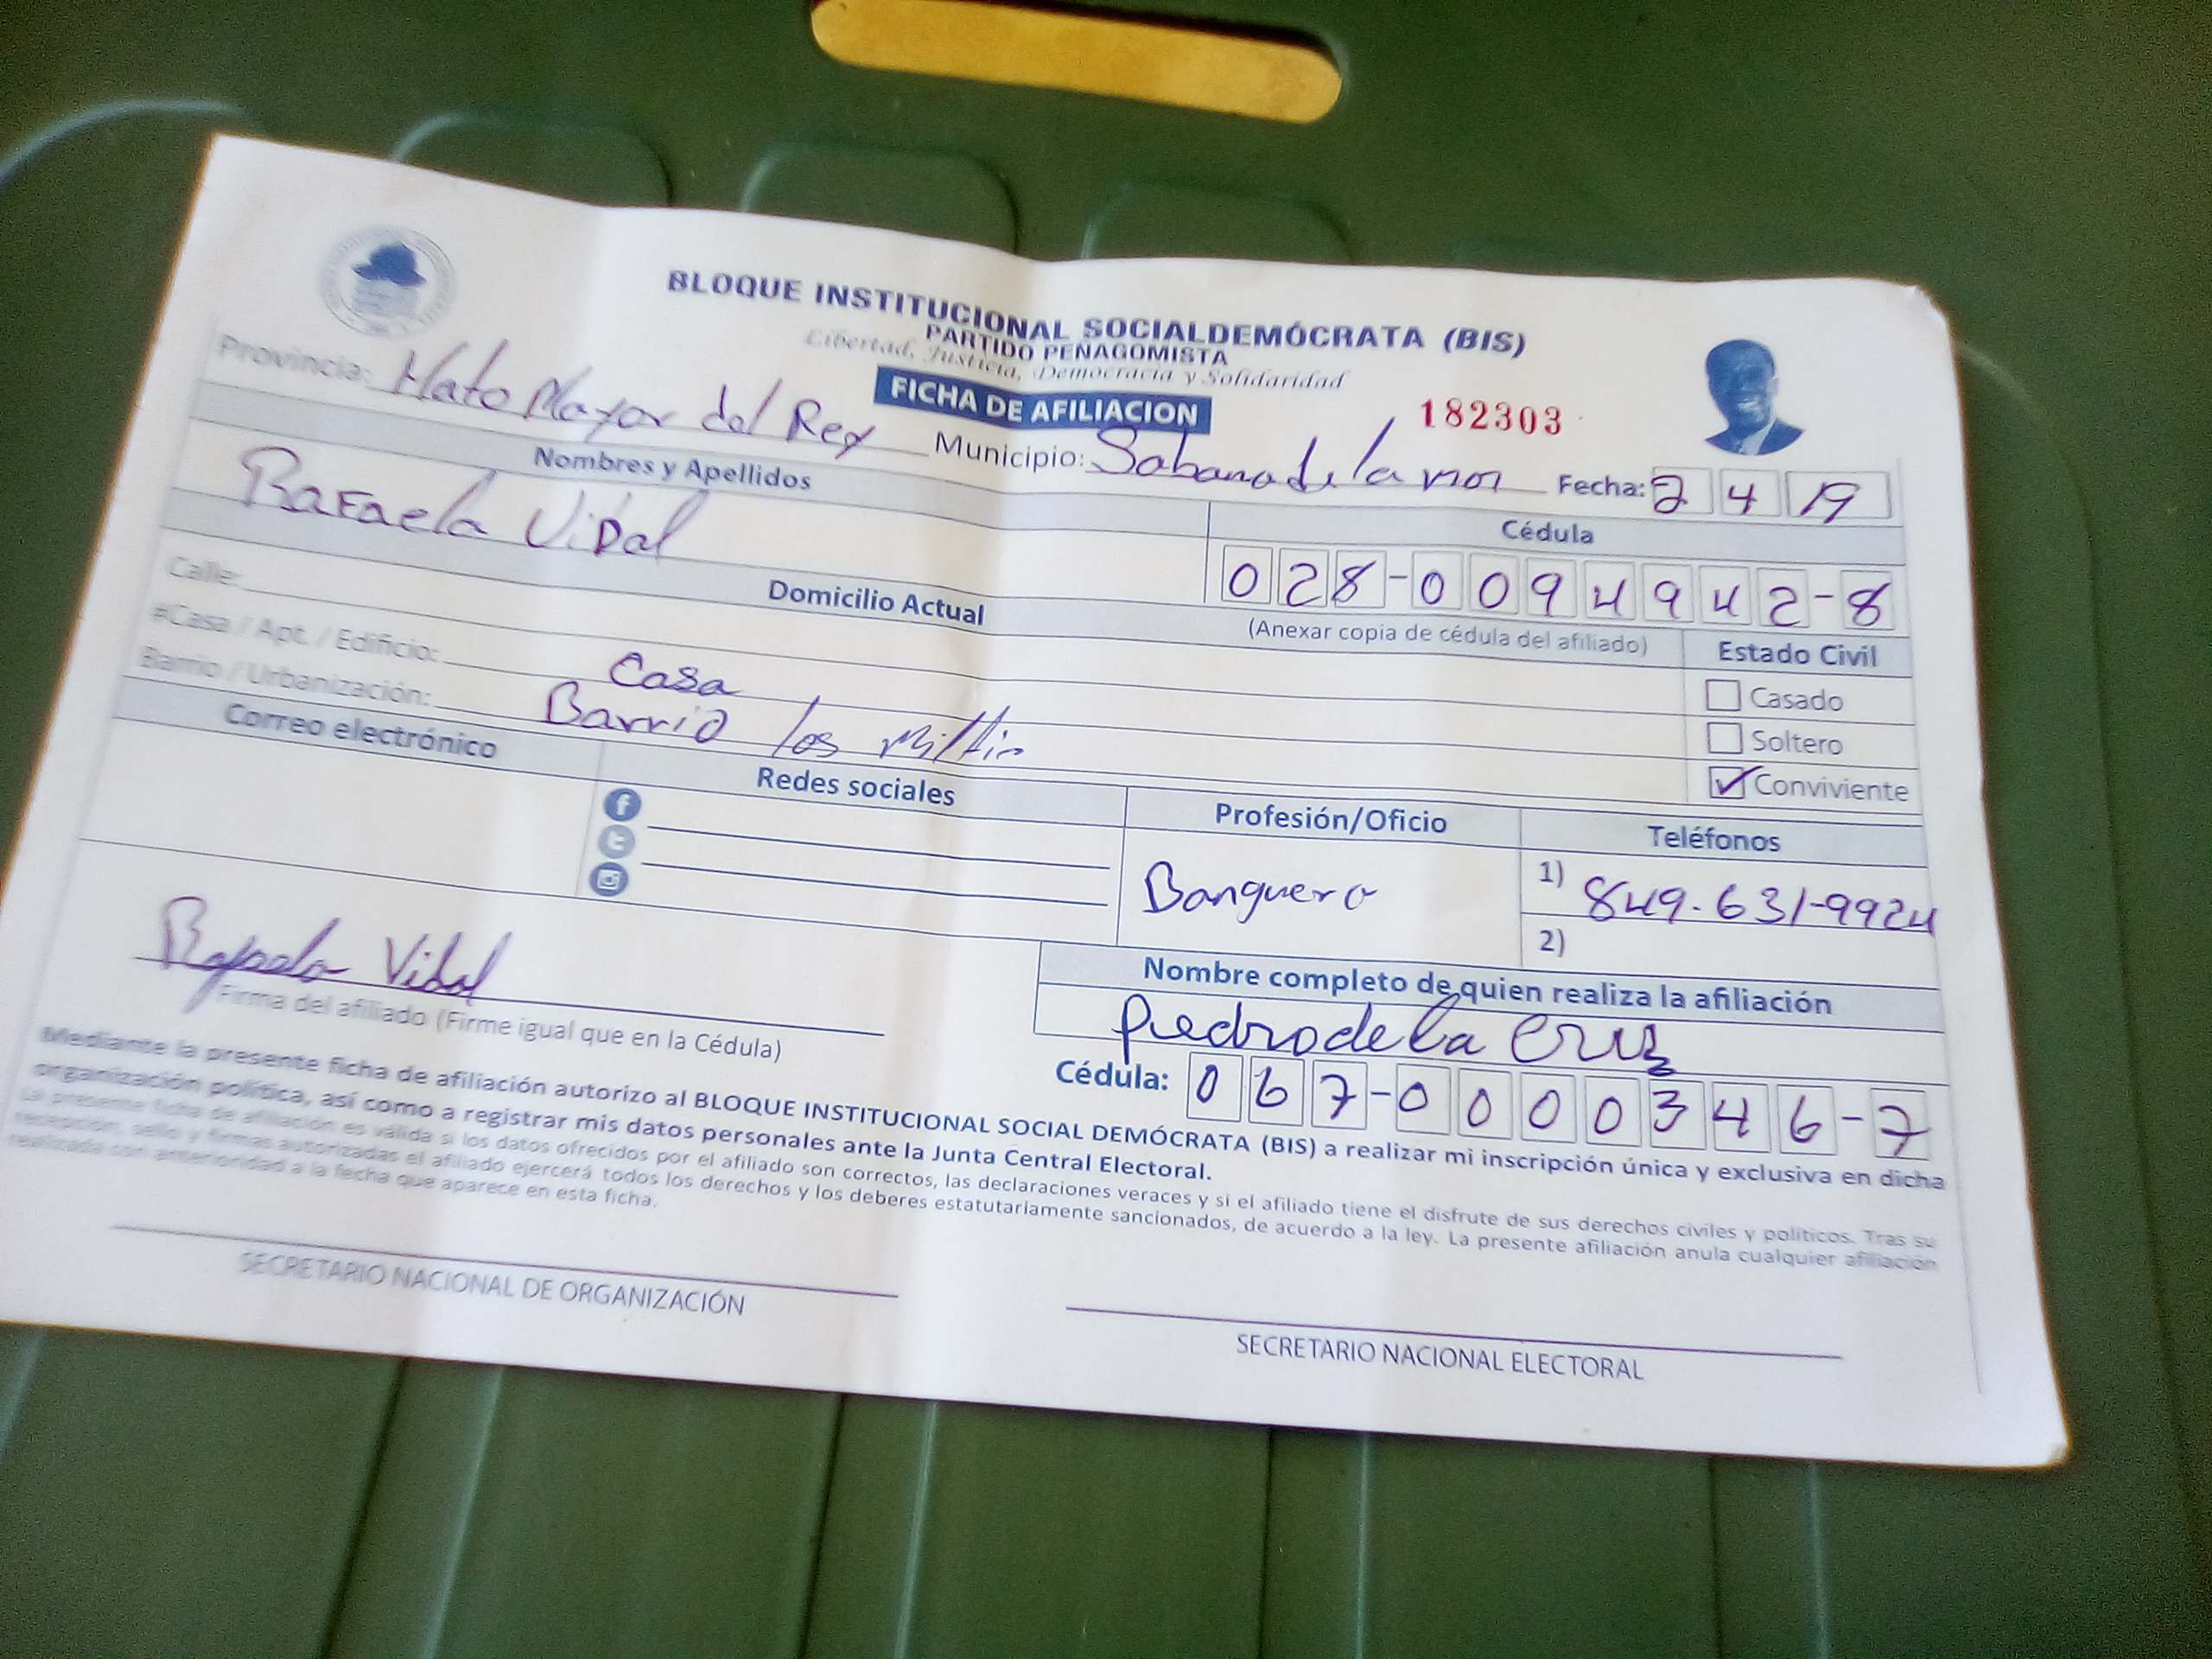 BLOQUE INSTITUCIONAL SOCIALDEMÓCRATA (BIS)
PARTIDO PEÑAGOMISTA
Libertad, Justicia, Democracia y Solidaridad
FICHA DE AFILIACION
182303
Provincia: Hato Mayor del Rey Municipio: Sabana de la mar Fecha: 2 4 19
Nombres y Apellidos
Rafaela Vidal
Cédula
028-0094942-8
(Anexar copia de cédula del afiliado)
Domicilio Actual
Calle:
#Casa / Apt. / Edificio: Casa
Barrio / Urbanización: Barrio los
Estado Civil
Casado
Soltero
✓ Conviviente
Correo electrónico
Redes sociales
Profesión/Oficio
Banquera
Teléfonos
1) 849-631-9924
2)
Rafaela Vidal
Firma del afiliado (Firme igual que en la Cédula)
Nombre completo de quien realiza la afiliación
Piedro de la Cruz
Cédula: 067-0000346-7
Mediante la presente ficha de afiliación autorizo al BLOQUE INSTITUCIONAL SOCIAL DEMÓCRATA (BIS) a realizar mi inscripción única y exclusiva en dicha
organización política, así como a registrar mis datos personales ante la Junta Central Electoral.
La presente ficha de afiliación es válida si los datos ofrecidos por el afiliado son correctos, las declaraciones veraces y si el afiliado tiene el disfrute de sus derechos civiles y políticos. Tras su
recepción, sello y firmas autorizadas el afiliado ejercerá todos los derechos y los deberes estatutariamente sancionados, de acuerdo a la ley. La presente afiliación anula cualquier afiliación
realizada con anterioridad a la fecha que aparece en esta ficha.
SECRETARIO NACIONAL DE ORGANIZACIÓN
SECRETARIO NACIONAL ELECTORAL